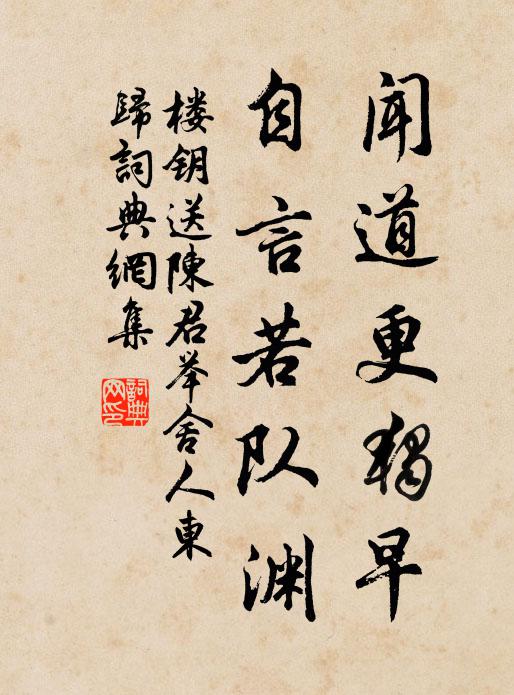 闻道更独早
自言若队渊
楼钥送陈君举舍人东
归词典网集
词典
网印